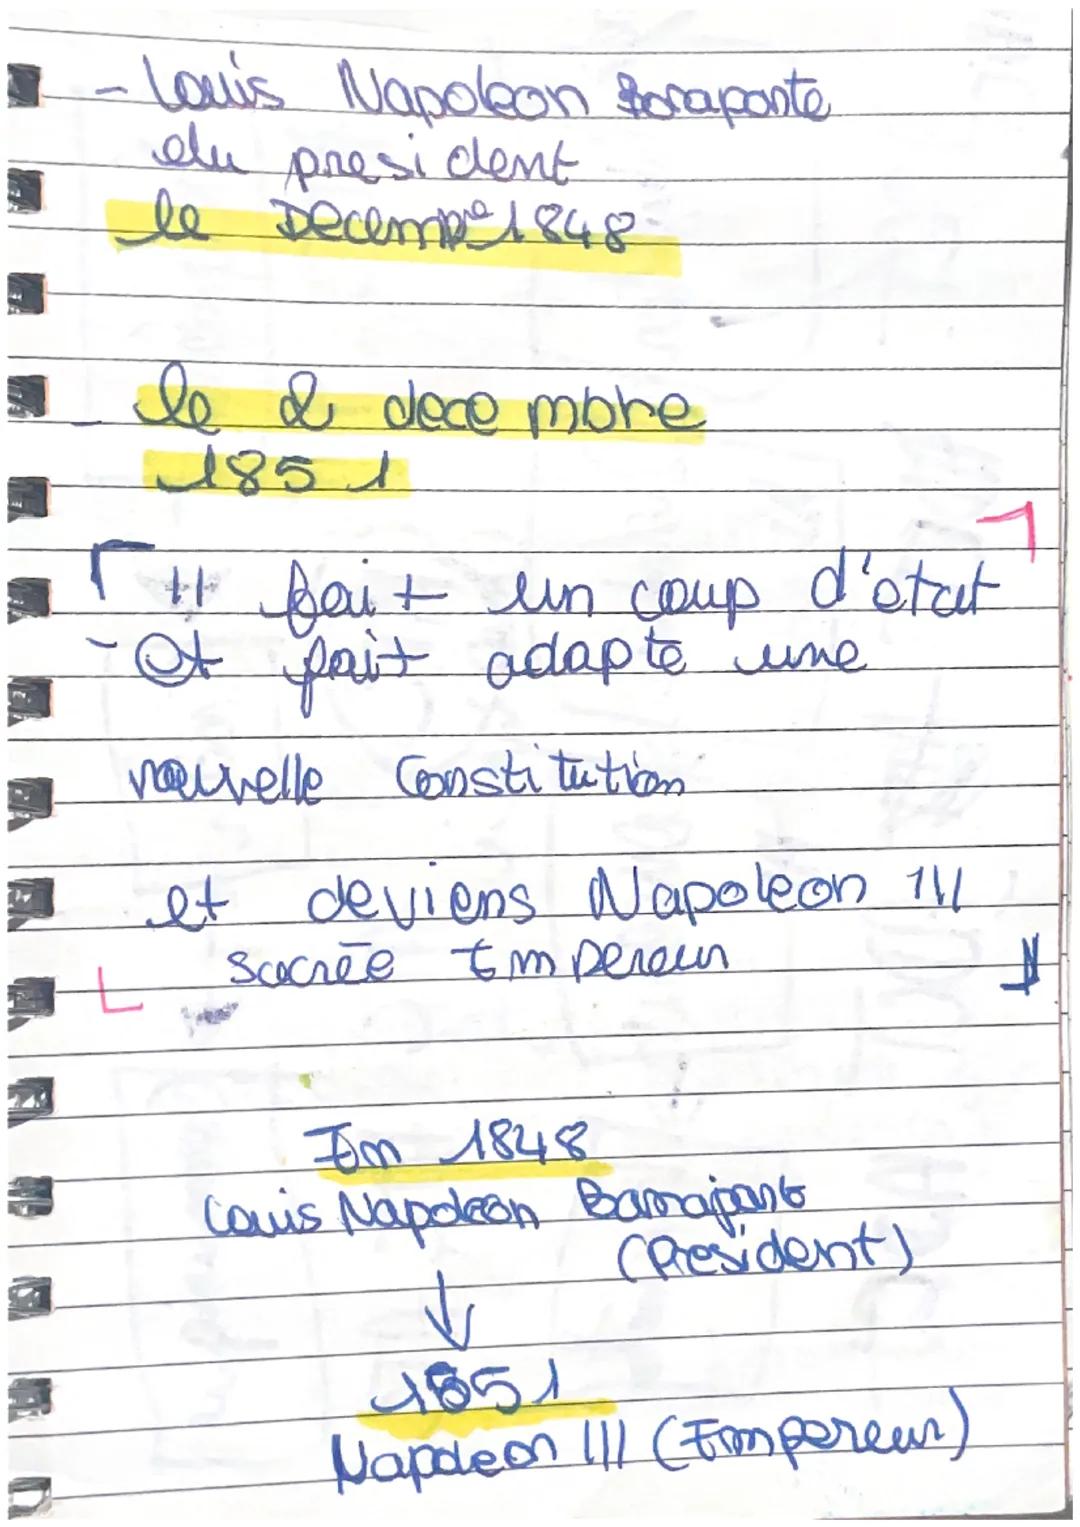 - Louis Napoleon Bonaparte
elu president
le Decembre 1848
- le 2 decembre
1851
Il fait un coup d'etat
- et fait adapte une
nouvelle Constitution
et deviens Napoleon III
sacrée Empereur
En 1848
Louis Napoleon Bonapart
(President)
↓
1851
Napoleon III (Empereur)